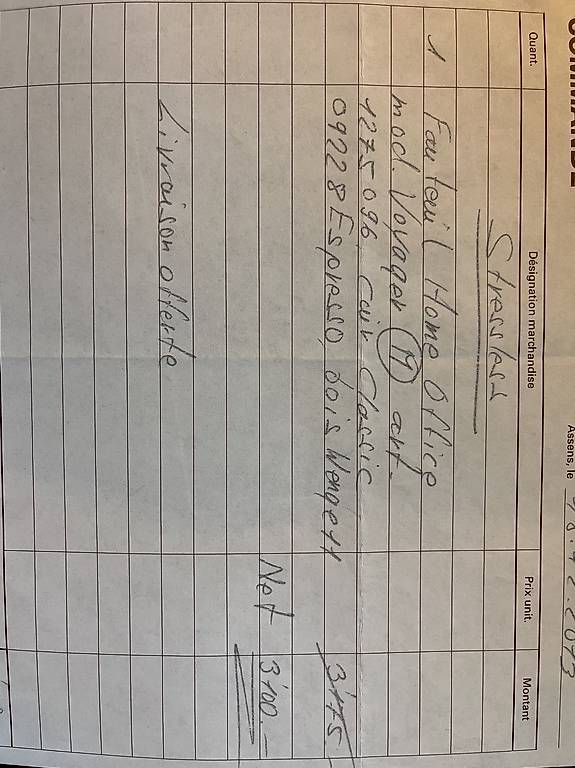 COMMANDE
Assens, le 18.12.2013
Quant. Désignation marchandise Prix unit. Montant
Stressless
1 Fauteuil Home Office
mod. Voyager (M) art.
1275096, cuir Classic
09228 Espresso, bois Wenge 11 3'175
Net 3'100.—
Livraison offerte